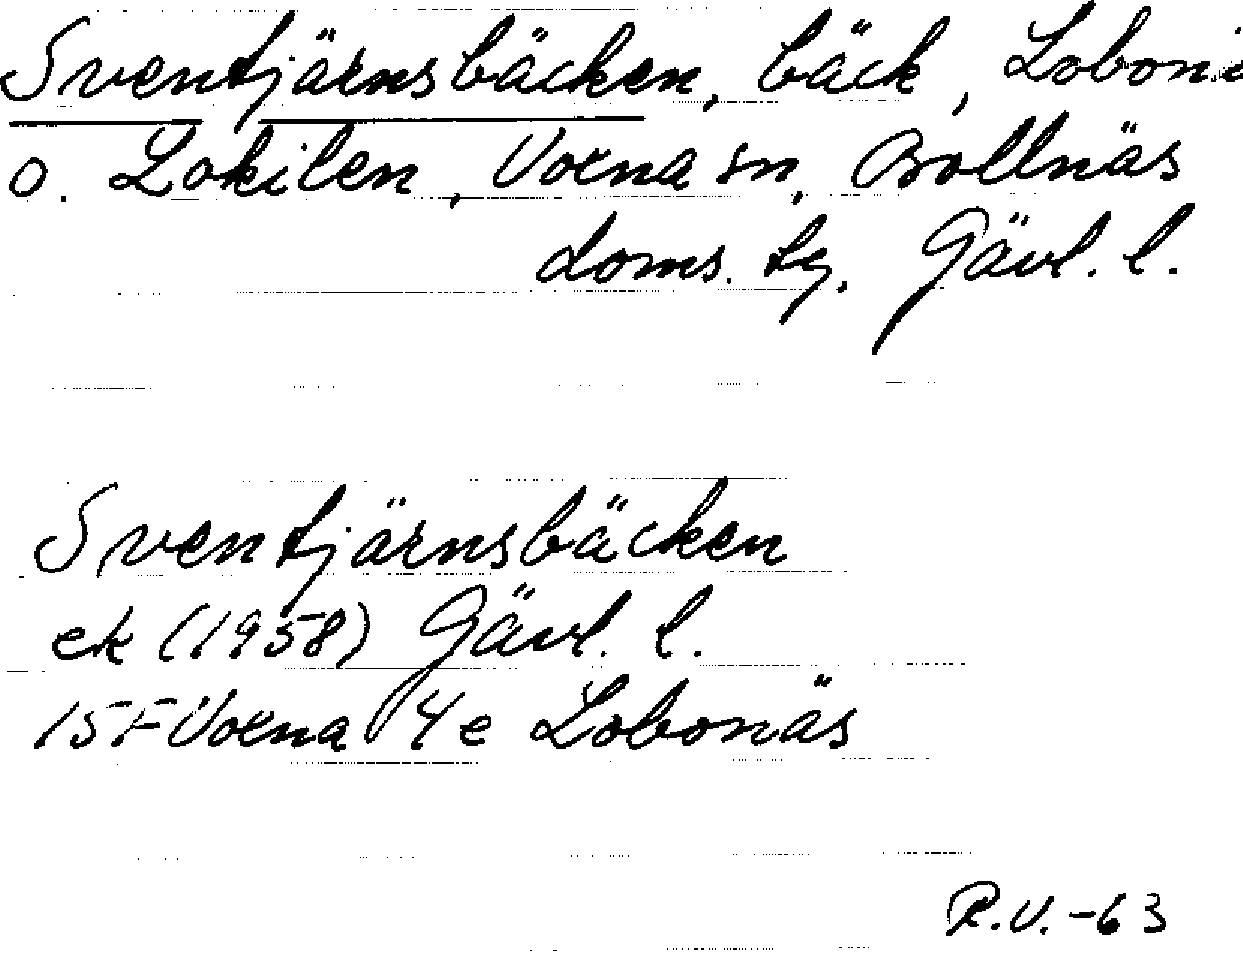 Sventjärnsbäcken, bäck, Lobonä
o. Lokilen, Voxna sn, Bollnäs
doms. tg, Gävl. l.
Sventjärnsbäcken
ek (1958) Gävl. l.
15F Voxna 4e Lobonäs
R.V. -63